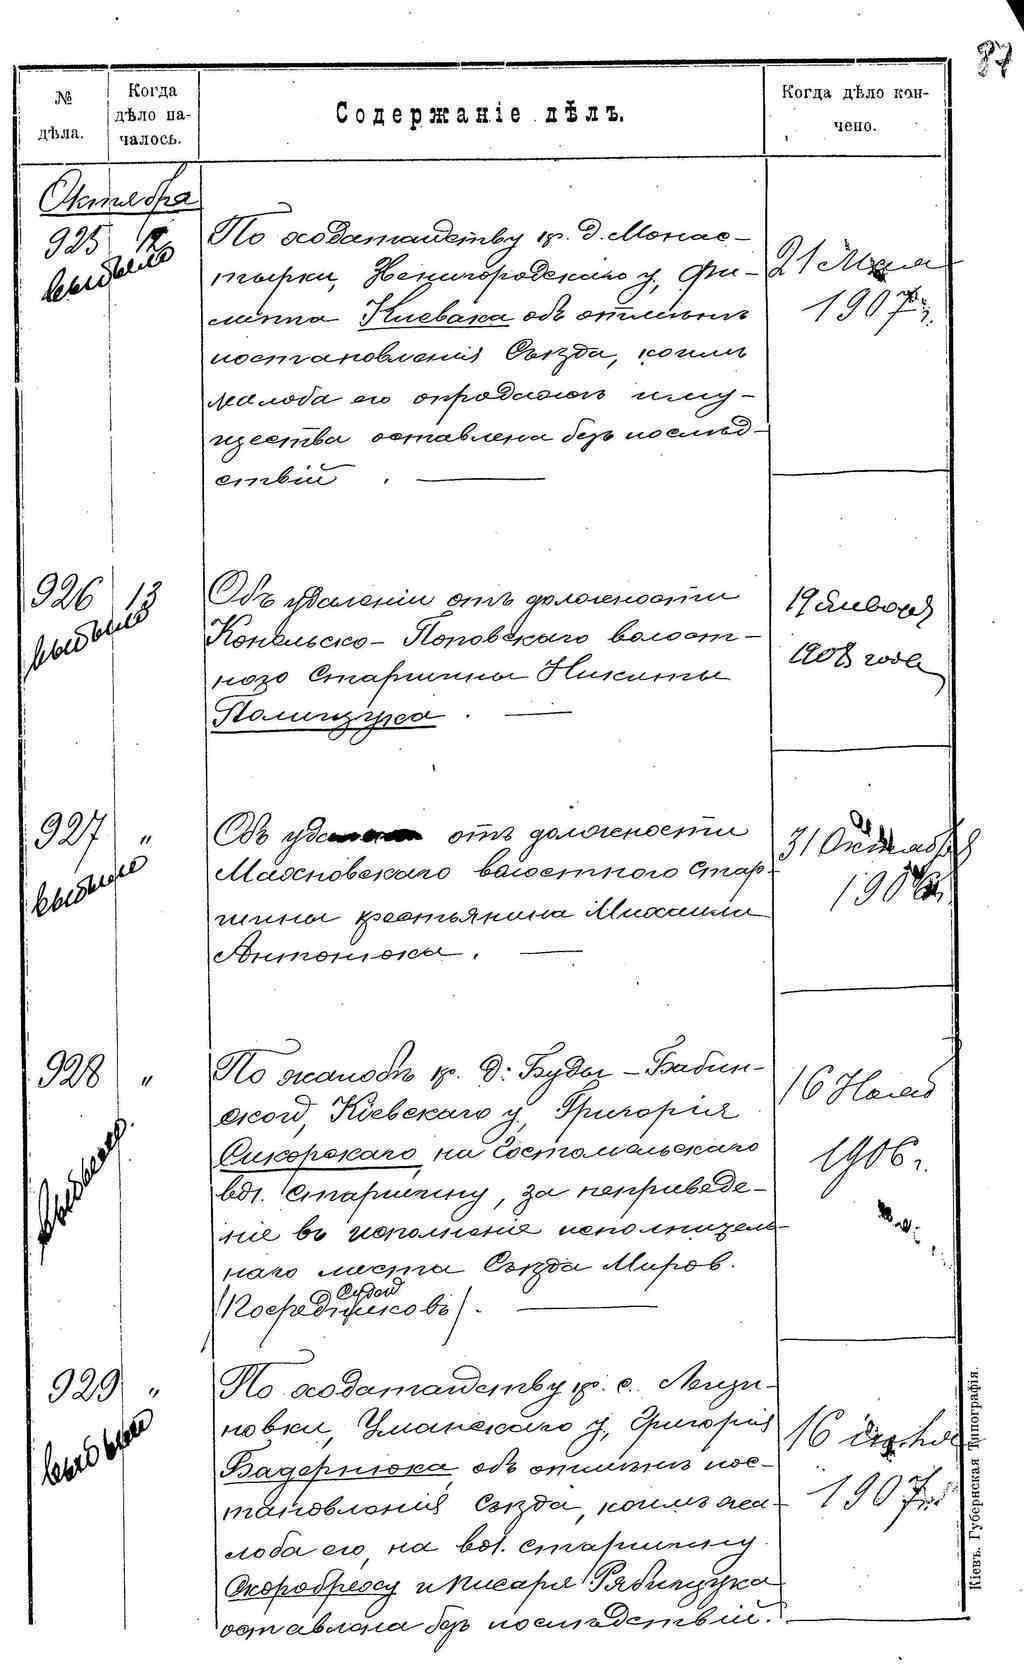 87
№ дѣла.
Когда дѣло началось.
Содержаніе дѣлъ.
Когда дѣло кончено.
Октября
925
12
выбыло
По ходатайству кр. д. Монас-
тырки, Звенигородскаго у, Фи-
липпа Клевака объ отмѣнѣ
постановленія Съѣзда, коимъ
жалоба его о продажѣ иму-
щества оставлена безъ послѣд-
ствій.
21 Мая
1907 г.
926
13
выбыло
Объ удаленіи отъ должности
Конельско-Поповскаго волост-
ного Старшины Никиты
Полищука.
19 Января
1908 года
927
"
выбыло
Объ отъ должности
Махновскаго волостного Стар-
шины крестьянина Михаила
Антонюка.
31 Октября
1906 г.
928
"
выбыло
По жалобѣ кр. д: Буды-Бабин-
ской, Кіевскаго у, Григорія
Сикорскаго, на Гостомельскаго
вол. Старшину, за неприведе-
ніе въ исполненіе исполнитель-
наго листа Съѣзда Миров.
Посредниковъ/.
16 Нояб
1906 г.
929
"
выбыло
По ходатайству кр. с.
новки, Уманскаго у, Григорія
Бадернюка, объ отмѣнѣ пос-
тановленія Съѣзда, коимъ жа-
лоба его, на вол. старшину
Скоробреху и писаря Рябищука
оставлена безъ послѣдствій.
16
1907 г.
Кіевъ. Губернская Типографія.